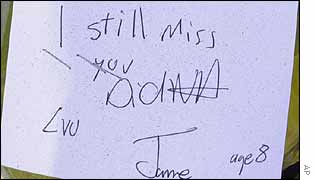 I still miss
you
DIANA
LVU
Jame
age 8
AP